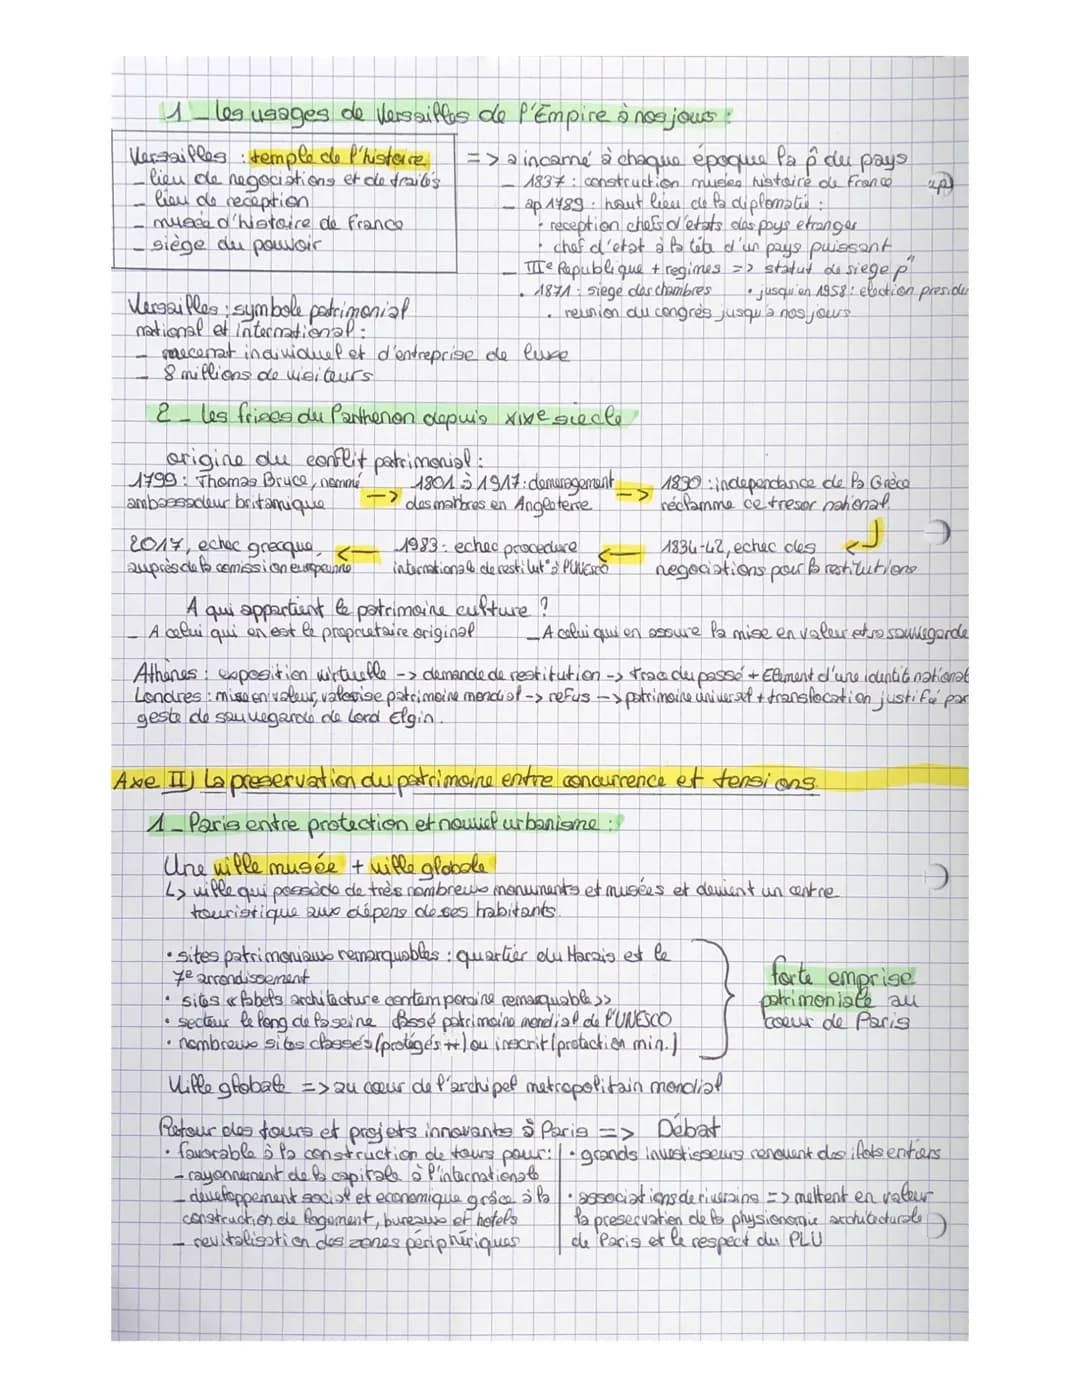 1 _ les usages de Versailles de l'Empire à nos jours :
Versailles : temple de l'histoire
_ lieu de negociations et de traités
_ lieu de reception
_ musée d'histoire de France
_ siège du pouvoir
=> a incarné à chaque époque la p̂ du pays
_ 1837 : construction musée histoire de France
_ ap 1789 : haut lieu de la diplomatie :
• reception chefs d'etats des pays etranger
• chef d'etat à la tête d'un pays puissant
_ IIIe Republique + regimes => statut de siege p"
• 1871 : siege des chambres • jusqu'en 1958 : election preside
• reunion du congrès jusqu'à nos jours
Versailles : symbole patrimonial
national et international :
_ mecenat individuel et d'entreprise de luxe
_ 8 millions de visiteurs
2 _ les frises du Parthenon depuis XIXe siecle
origine du conflit patrimonial :
1799 : Thomas Bruce, nommé
ambassadeur britanique
-> 1801 à 1917 : demenagement
des marbres en Angleterre
-> 1830 : independance de la Grèce
réclamme ce tresor national
1834-42, echec des
negociations pour la restitutions
<- 1983 : echec procedure
internationale de restitut° à l'UNESCO
<- 2017, echec grecque,
auprès de la comission européenne
A qui appartient le patrimoine culture ?
_ A celui qui en est le proprietaire original _ A celui qui en assure la mise en valeur et sa sauvegarde
Athènes : exposition virtuelle -> demande de restitution -> trace du passé + Element d'une identité national
Londres : mise en valeur, valorise patrimoine mondial -> refus -> patrimoine universel + translocation justifié par
geste de sauvegarde de Lord Elgin.
Axe II) La preservation du patrimoine entre concurrence et tensions.
1 _ Paris entre protection et nouvel urbanisme :
Une ville musée + ville globale
↳ ville qui possède de très nombreux monuments et musées et devient un centre
touristique aux dépens de ses habitants.
• sites patrimoniaux remarquables : quartier du Marais et le
7e arrondissement
• sites « labels architecture contemporaine remarquable »
• secteur le long de la seine classé patrimoine mondial de l'UNESCO
• nombreux sites classés (protégés ++) ou inscrit (protection min.)
forte emprise
patrimoniale au
coeur de Paris
Ville globale => au cœur de l'archipel metropolitain mondial
Retour des tours et projets innovants à Paris => Débat
• favorable à la construction de tours pour :
_ rayonnement de la capitale à l'internationale
_ développement social et economique grâce à la
construction de logement, bureaux et hotels
_ revitalisation des zones périphériques
• grands investisseurs renouent des ilots entiers
• associations de riverains => mettent en valeur
la preservation de la physionomie architecturale
de Paris et le respect du PLU